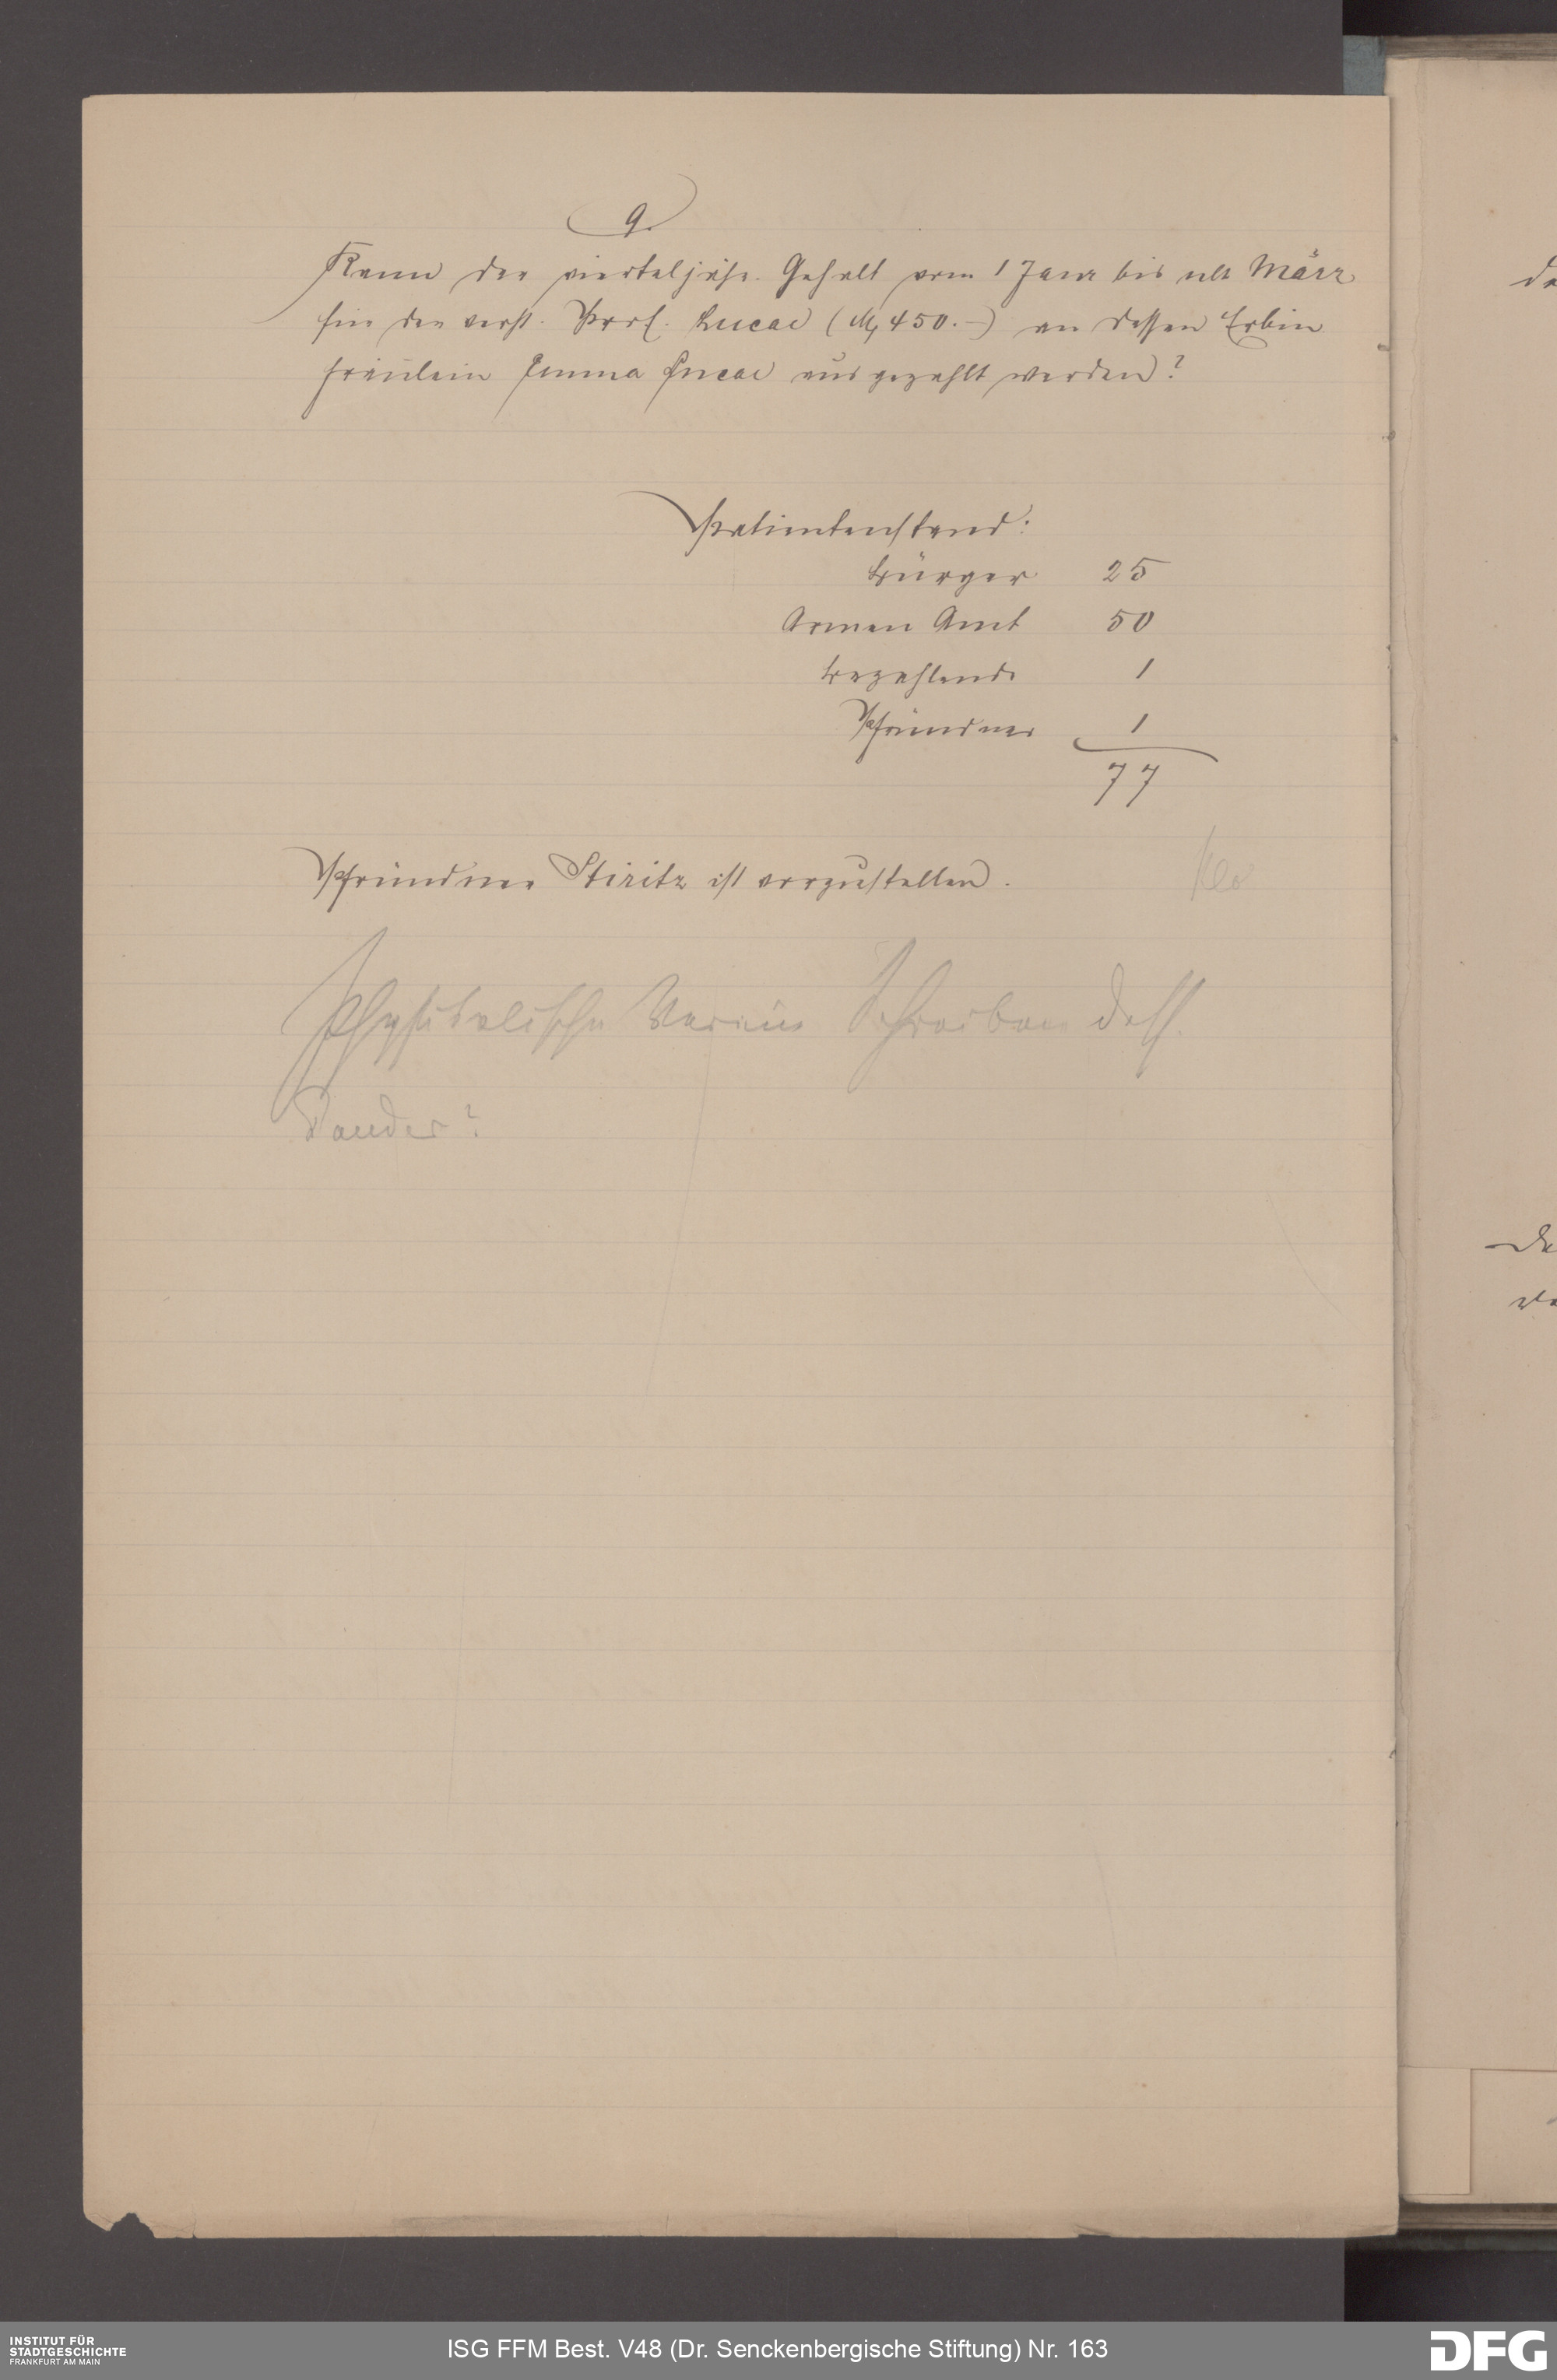 9.
Kann der vierteljähr. Gehalt vom 1 Janr bis ult März
für den verst. Prof. Lucae (M 450.–) an dessen Erbin
Fräulein Emma Lucae ausgezahlt werden?
Patientenstand:
Bürger 25
Armen Amt 50
Bezahlende 1
Pfründner 1
77
Pfründner Stiritz ist vorzustellen.
Physikalische Verein Schreiben dess.
INSTITUT FÜR
STADTGESCHICHTE
FRANKFURT AM MAIN
ISG FFM Best. V48 (Dr. Senckenbergische Stiftung) Nr. 163
DFG